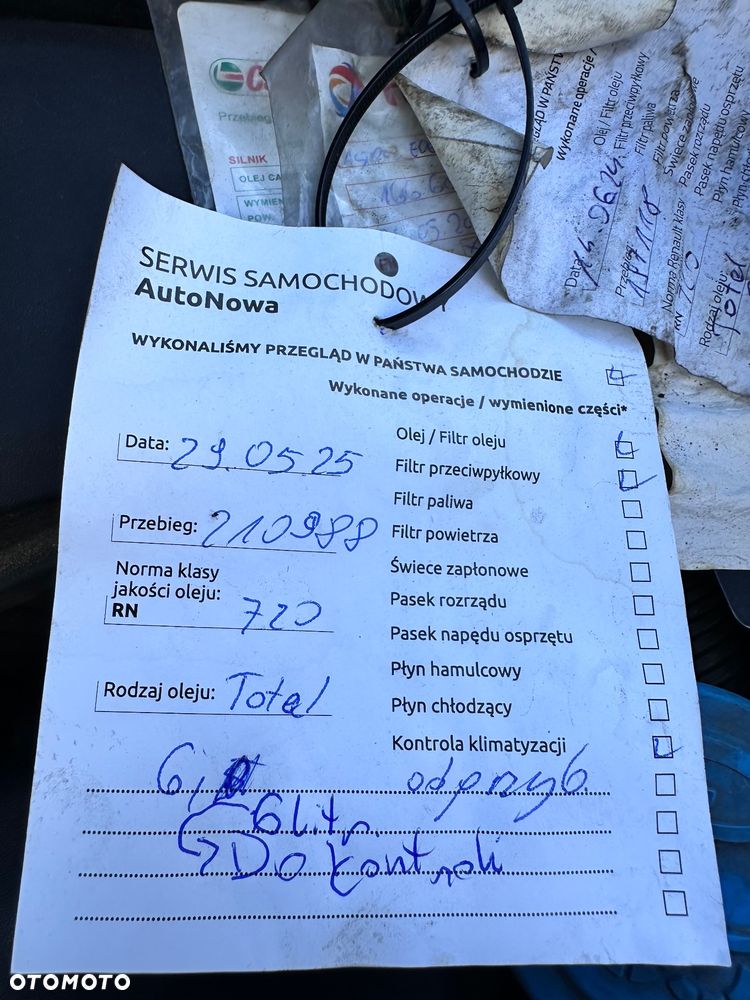 Przebieg
SILNIK
OLEJ CA
WYMIEN
POW.
GLĄD W PAŃSTW
Wykonane operacje /
Olej / Filtr oleju
Filtr przeciwpyłkowy
Filtr paliwa
Filtr powietrza
Świece zapłonowe
Pasek rozrządu
Pasek napędu osprzętu
Płyn hamulcowy
Data
Przebieg: 197118
Norma Renault klasy
RN
Rodzaj oleju: Total
SERWIS SAMOCHODOWY
AutoNowa
WYKONALIŚMY PRZEGLĄD W PAŃSTWA SAMOCHODZIE
Wykonane operacje / wymienione części*
Data: 29.05 25
Przebieg: 210988
Norma klasy
jakości oleju:
RN 720
Rodzaj oleju: Total
Olej / Filtr oleju
Filtr przeciwpyłkowy
Filtr paliwa
Filtr powietrza
Świece zapłonowe
Pasek rozrządu
Pasek napędu osprzętu
Płyn hamulcowy
Płyn chłodzący
Kontrola klimatyzacji
odgrzyb.
6 litr.
Do kontroli
OTOMOTO